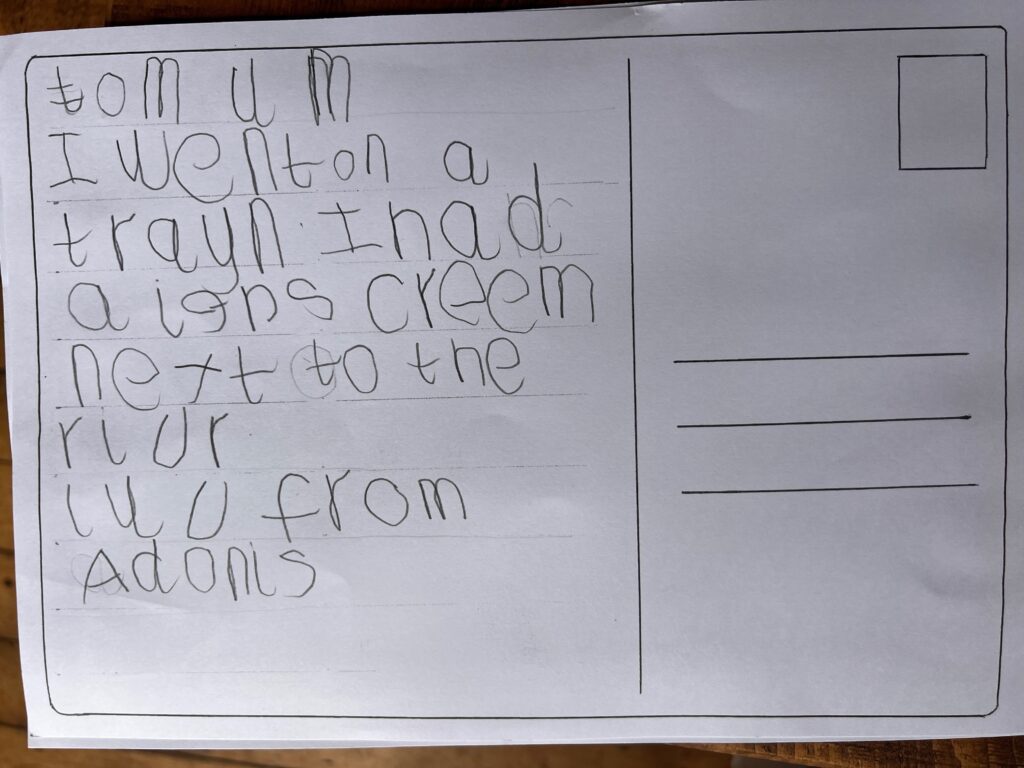 to m u m
I went on a
trayn. I had
a igns creem
next to the
rivr
luv from
Adonis